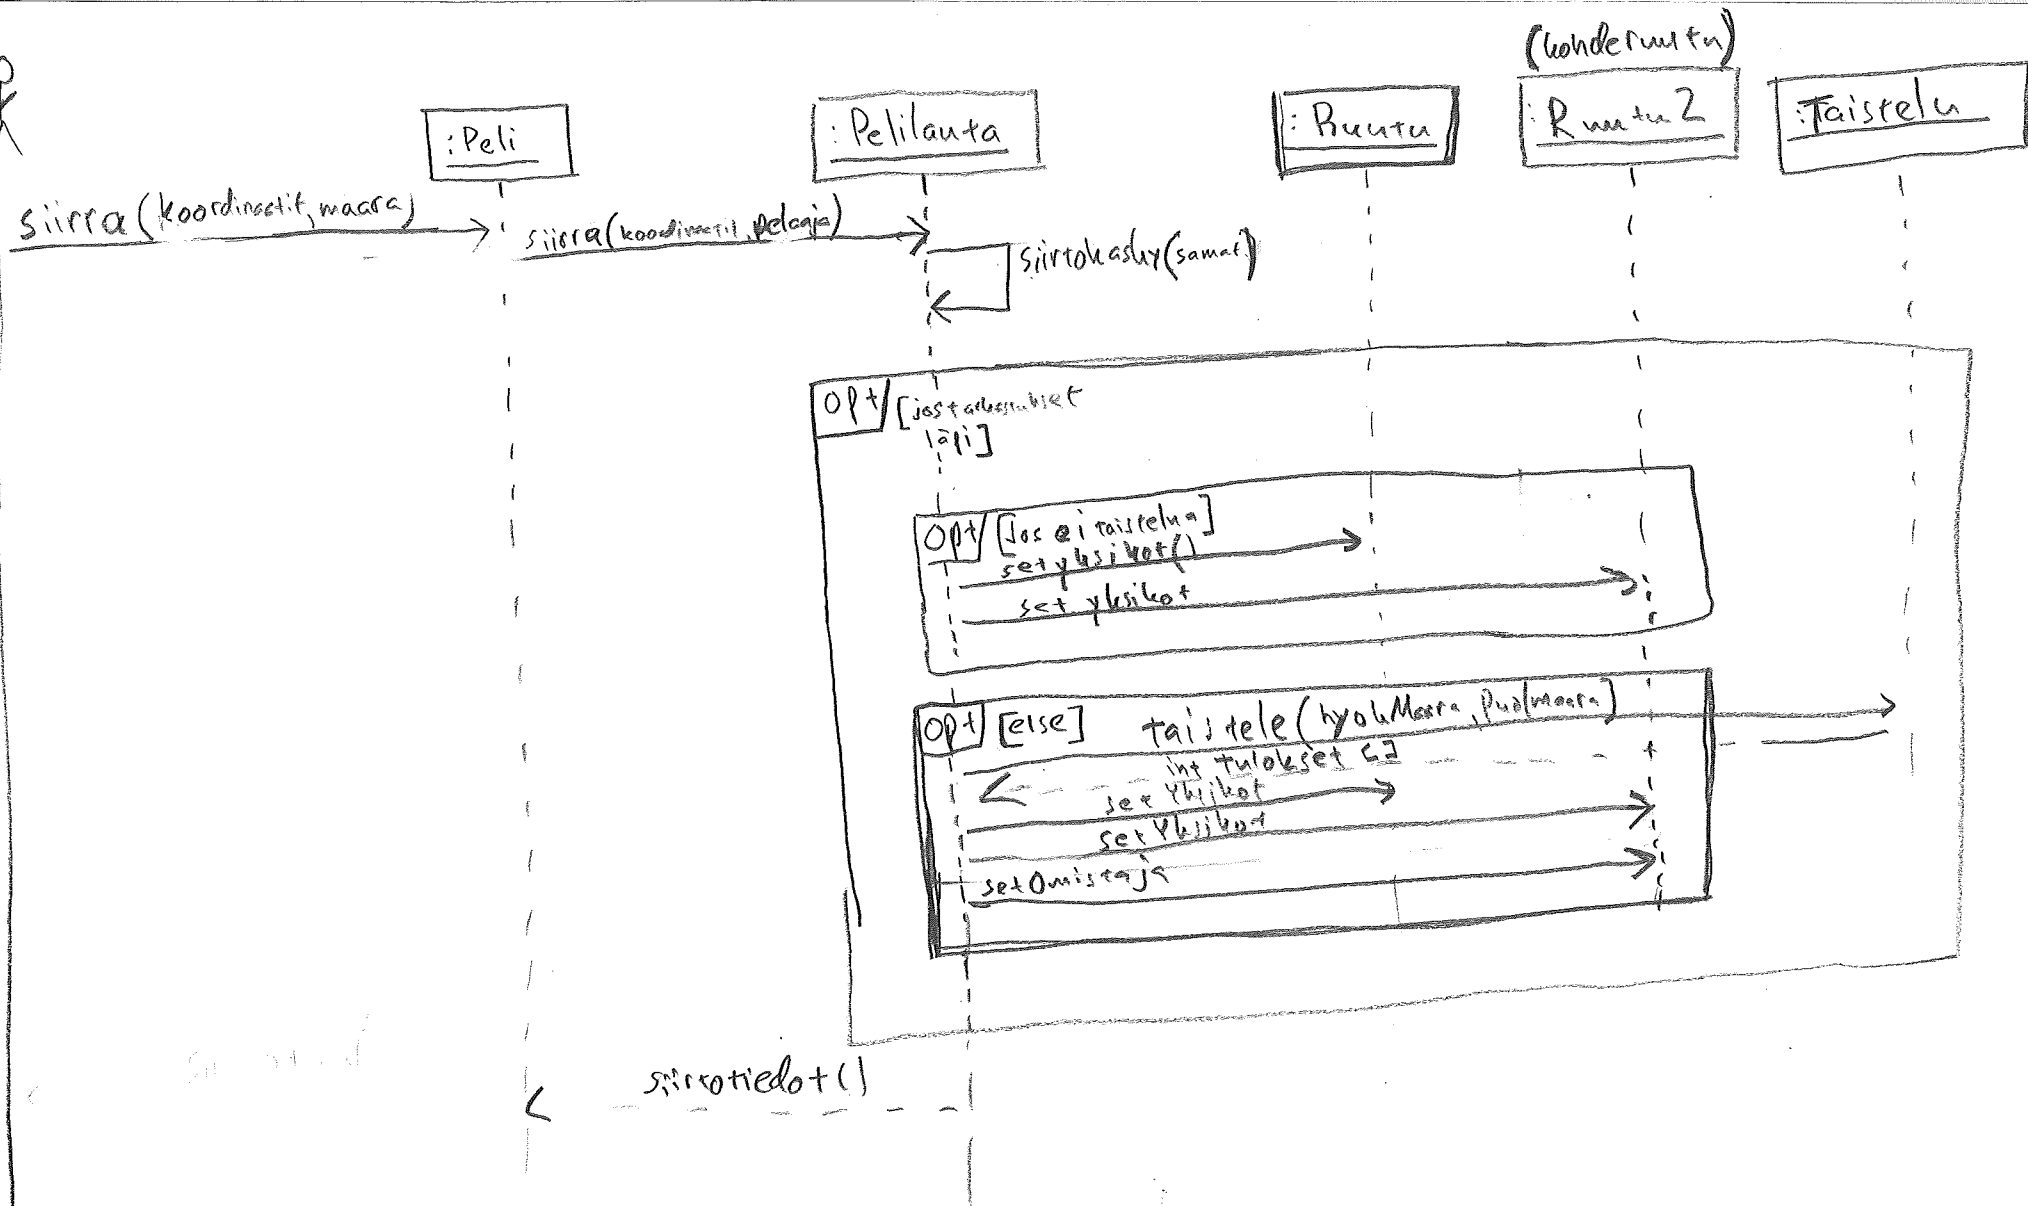 (kohderuutu)
:Peli
:Pelilauta
:Ruutu
:Ruutu2
:Taistelu
siirra(koordinaatit, maara)
siirra(koordinaatit, pelaaja)
siirtokasky(samat)
opt [jos tarkastukset
läpi]
opt [Jos ei taistelua]
setyksikot()
set yksikot
opt [else] taistele(hyokMaara, puolmaara)
int tulokset []
set Yksikot
set Yksikot
setOmistaja
siirtotiedot()